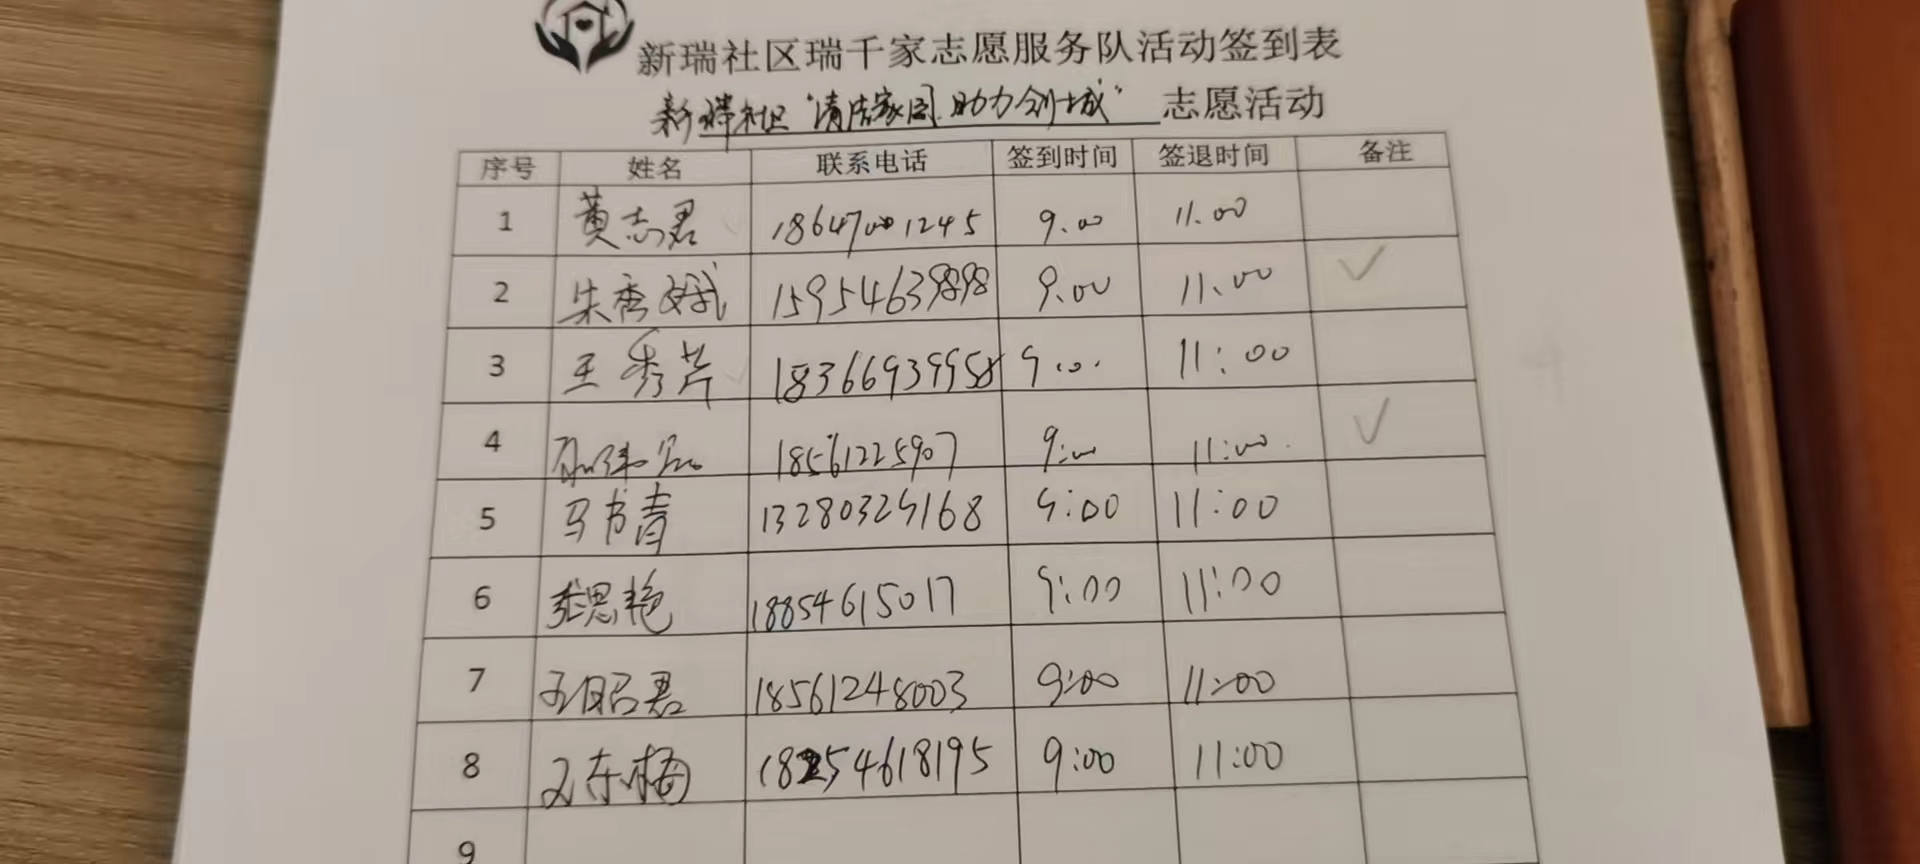 新瑞社区瑞千家志愿服务队活动签到表
新瑞社区“清洁家园 助力创城” 志愿活动
序号 姓名 联系电话 签到时间 签退时间 备注
1 黄志君 18647001245 9.00 11.00
2 朱秀娥 15954639898 9.00 11.00 ✓
3 王秀芹 18366939958 9:00 11:00
4 18561225907 9:00 11:00 ✓
5 马书青 13280324168 9:00 11:00
6 张思艳 18854615017 9:00 11:00
7 18561248003 9:00 11:00
8 东梅 18254618195 9:00 11:00
9